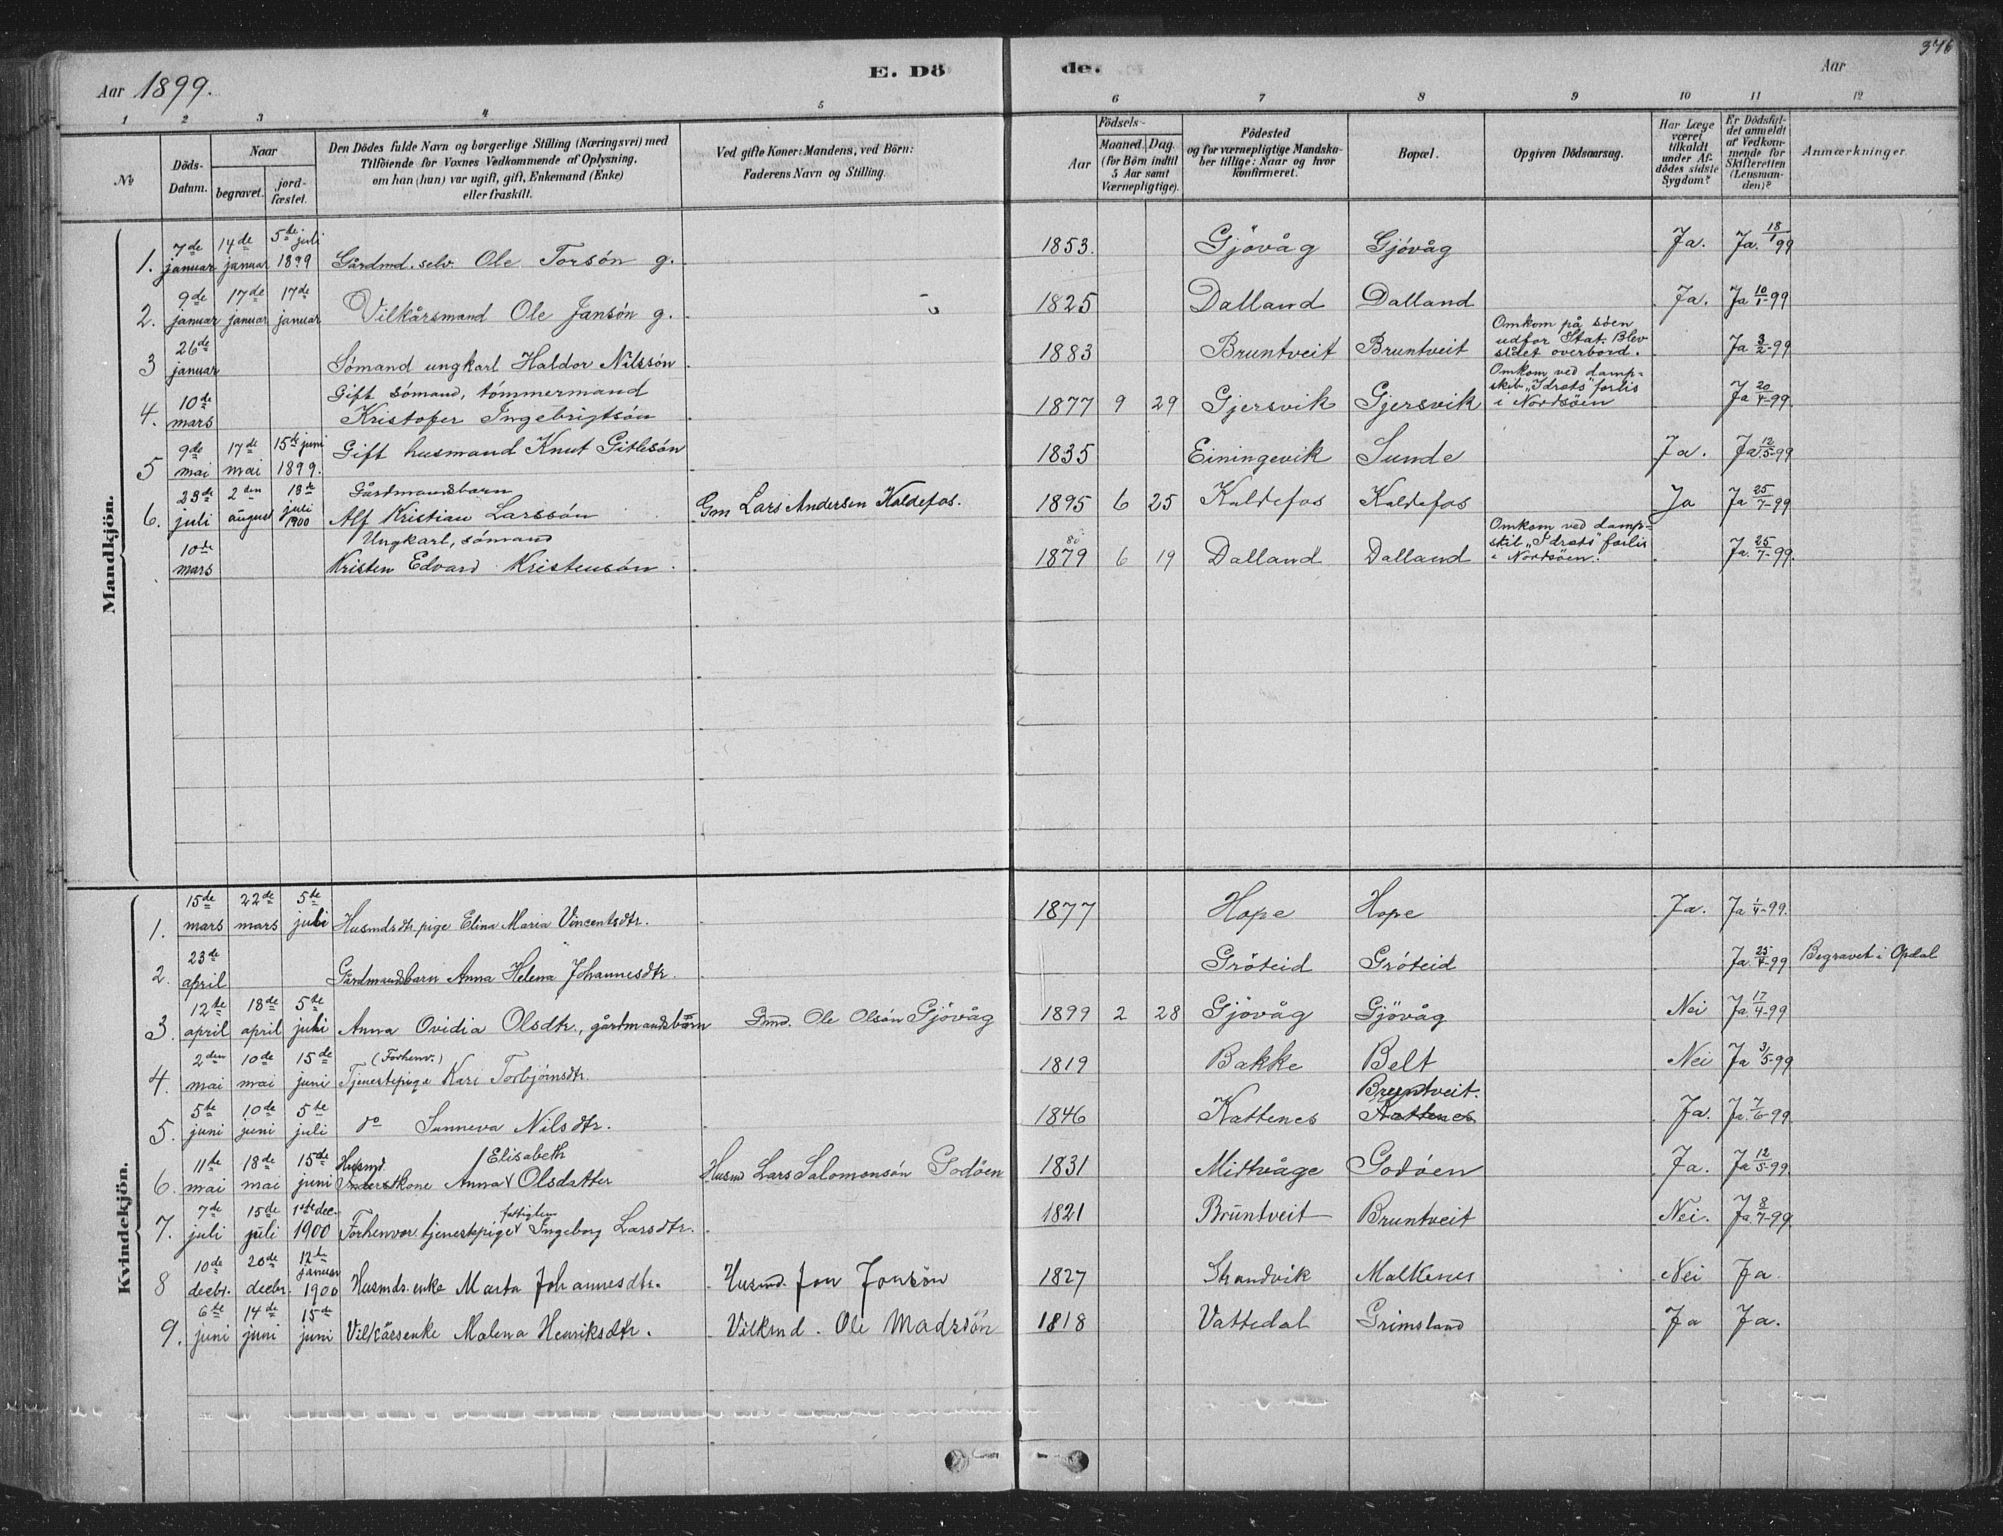 376
Aar 1899. E. Dö de. Aar
1 2 3 4 5 6 7 8 9 10 11 12
№ Döds-Datum. Naar begravet. jord-fæstet. Den Dödes fulde Navn og borgerlige Stilling (Næringsvei) med Tilföiende for Voxnes Vedkommende af Oplysning, om han (hun) var ugift, gift, Enkemand (Enke) eller fraskilt. Ved gifte Koner: Mandens, ved Börn: Faderens Navn og Stilling. Födsels- Aar Maaned. Dag. (for Börn indtil 5 Aar samt Værnepligtige). Födested og for værnepligtige Mandskaber tillige: Naar og hvor konfirmeret. Bopæl. Opgiven Dödsaarsag. Har Læge været tilkaldt under Afdödes sidste Sygdom? Er Dödsfaldet anmeldt af Vedkommende for Skifteretten (Lensmanden)? Anmærkninger.
Mandkjön.
1. 7de januar 14de januar 5te juli 1899 Gårdmd. selv. Ole Torsön g. 1853. Gjövåg Gjövåg Ja. Ja 18/1 99
2. 9de januar 17de januar 17de januar Vilkårsmand Ole Jansön g. 1825 Dalland Dalland Ja. Ja 10/1-99
3 26de januar Sömand ungkarl Haldor Nilssön 1883 Bruntveit Bruntveit Omkom på söen udfor Stat. Blev slået overbord. Ja 3/2-99
4. 10de mars Gift sömand, tömmermand Kristofer Ingebrigtsön 1877 9 29 Gjersvik Gjersvik Omkom ved damp-skib "Idræts" forlis i Nordsöen Ja 20/4-99.
5 9de mai 17de mai 15de juni 1899. Gift husmand Knut Gitlesön 1835 Einingevik Sunde Ja. Ja 12/5-99
6. 23de juli 2den august 13de juli 1900 Gårdmandsbarn Alf Kristian Larssön Gm Lars Andersen Kaldefos. 1895 6 25 Kaldefos Kaldefos Ja Ja 25/7-99
10de mars Ungkarl, sömand Kristen Edvard Kristensön. 1879 80 6 19 Dalland Dalland Omkom ved damp-skib "Idræts" forlis i Nordsöen. Ja. 25/7-99.
Kvindekjön.
1. 15de mars 22de mars 5te juli Husmdsdtr. pige Elina Maria Vincentsdtr. 1877 Hope Hope Ja. Ja 1/4-99.
2. 23de april Gårdmandsbarn Anna Helena Johannesdtr. Gröteid Gröteid Ja 25/4-99 Begravet i Opdal
3. 12te april 18de april 5te juli Anna Ovidia Olsdtr., gårdmandsbarn Gmd. Ole Olsön Gjövåg 1899 2 28 Gjövåg Gjövåg Nei Ja 17/4-99
4. 2den mai 10de mai 15de juni (Forhenv.) Tjenestepige Kari Torbjörnsdtr. 1819 Bakke Belt Nei Ja 3/5-99
5. 5te juni 10de juni 5te juli do Sunneva Nilsdtr. 1846 Kattenes Bruntveit. Kattenes Ja. Ja 7/6-99.
6. 11te mai 18de mai 15de juni Husmd. kone Anna Elisabeth Olsdatter Husmd Lars Salomonsön Godöen 1831 Midtvåge Godöen Ja. Ja 12/5-99.
7. 7de juli 15de juli 1ste dec. 1900 Forhenvær. tjenestepige fattiglem Ingeborg Larsdtr. 1821 Bruntveit Bruntveit Nei. Ja 8/7-99.
8 10de decbr. 20de decbr. 12te januar 1900 Husmds. enke Marta Johannesdtr. Husmd. Jon Jonsön 1827 Strandvik Malkenes Nei Ja.
9. 6te juni 14de juni 15de juni Vilkårsenke Malena Henriksdtr. Vilkmd. Ole Madssön 1818 Vattedal Grimsland Ja Ja.